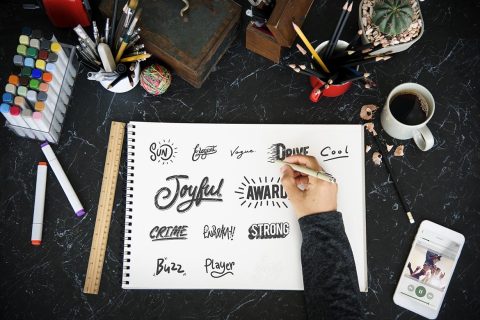 SUN Elegant Vogue DRIVE Cool
Joyful AWARD
CRIME EUREKA!! STRONG
Buzz Player